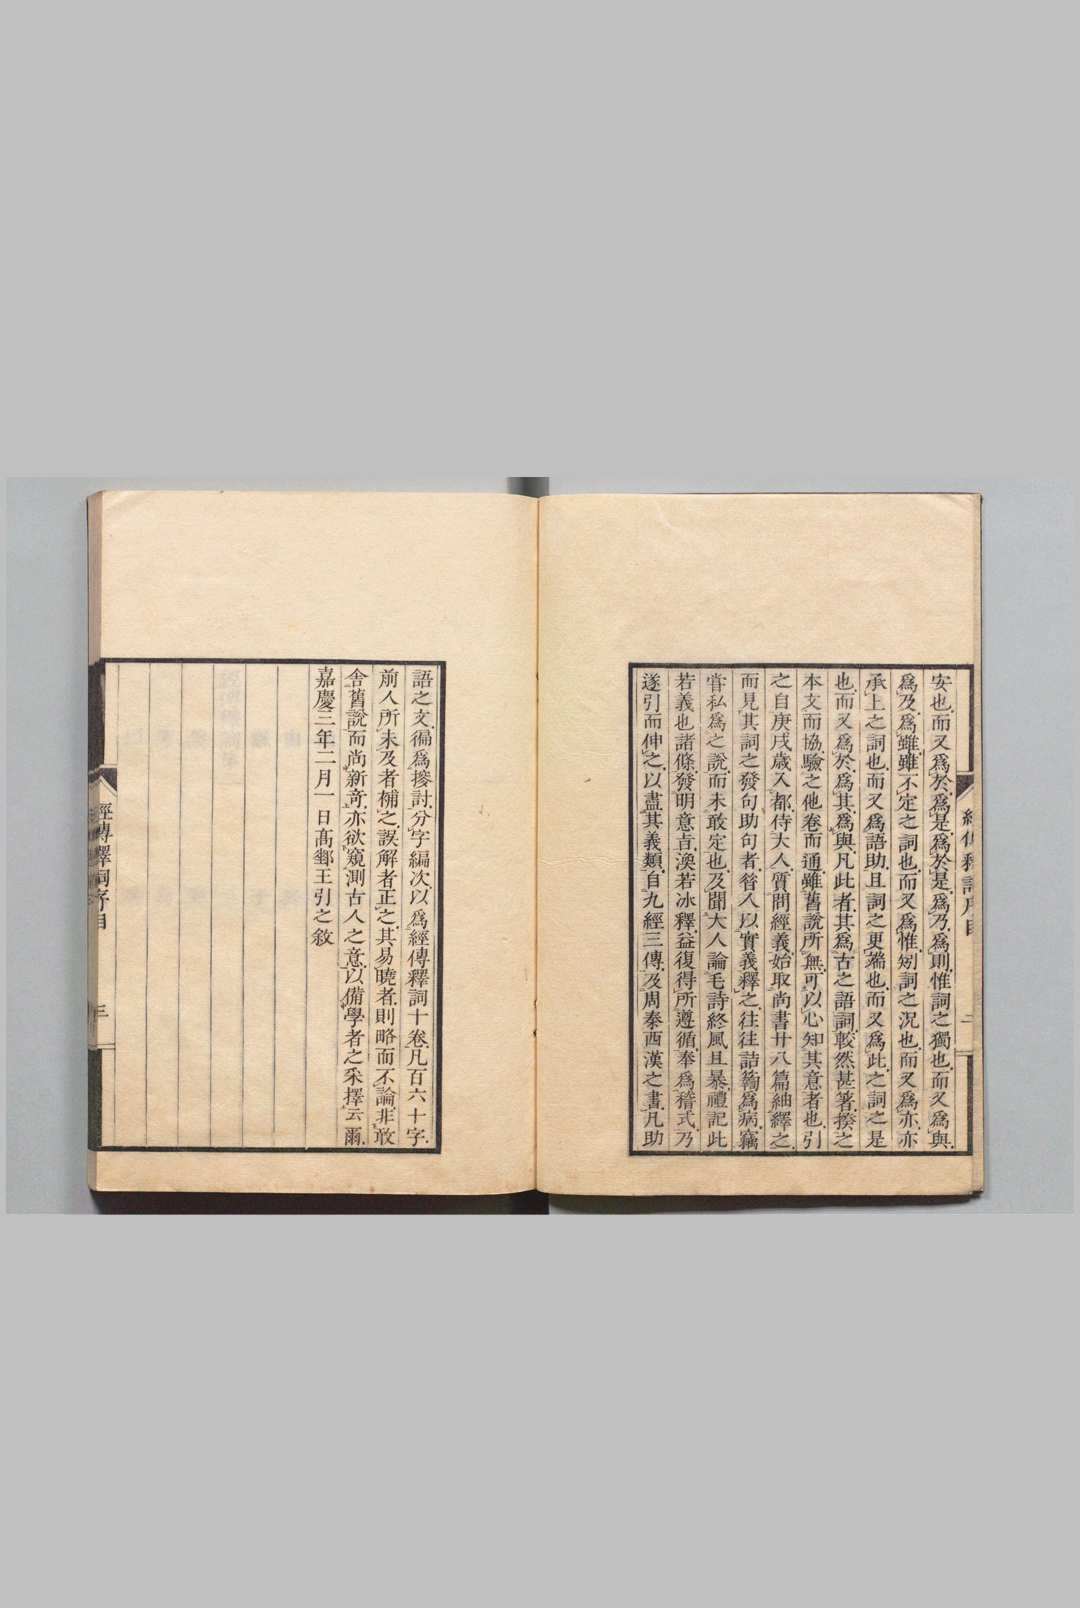 安也而又爲於爲是爲於是爲乃爲則惟詞之獨也而又爲與
爲及爲雖雖不定之詞也而又爲惟矧詞之況也而又爲亦亦
承上之詞也而又爲語助且詞之更端也而又爲此之詞之是
也而又爲於爲其爲與凡此者其爲古之語詞較然甚箸揆之
本文而協驗之他卷而通雖舊說所無可以心知其意者也引
之自庚戌歲入都侍大人質問經義始取尚書廿八篇紬繹之
而見其詞之發句助句者昝人以實義釋之往往詰𥷚爲病竊
嘗私爲之說而未敢定也及聞大人論毛詩終風且暴禮記此
若義也諸條發明意恉渙若冰釋益復得所遵循奉爲稽式乃
遂引而伸之以盡其義類自九經三傳及周秦西漢之書凡助
經傳釋詞序目
二
語之文徧爲搜討分字編次以爲經傳釋詞十卷凡百六十字
前人所未及者補之誤解者正之其易曉者則略而不論非敢
舍舊說而尚新奇亦欲窺測古人之意以備學者之采擇云爾
嘉慶三年二月一日高郵王引之敘
經傳釋詞序目
三